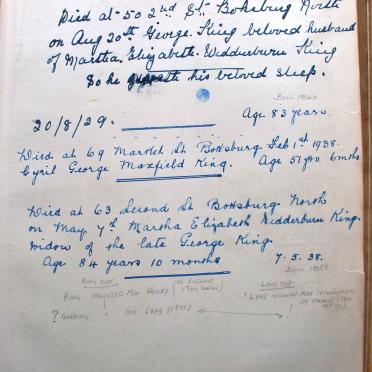 Died at 50 2nd St. Boksburg North
on Aug 20th George King beloved husband
of Martha Elizabeth Wedderburn King
So he giveth his beloved sleep.
Born 1846
20/8/29. Age 83 years.
Died at 69 Market St Boksburg Feb 1st 1938.
Cyril George Maxfield King. Age 57 yrs 6 mths
Died at 63 Second St Boksburg North
on May 7th Martha Elizabeth Wedderburn King
widow of the late George King.
Age 84 years 10 months 7.5.38.
Born 1853
King Side
Long Side
King married Miss
? Long married Miss Wedderburn
? Gooking Miss Long